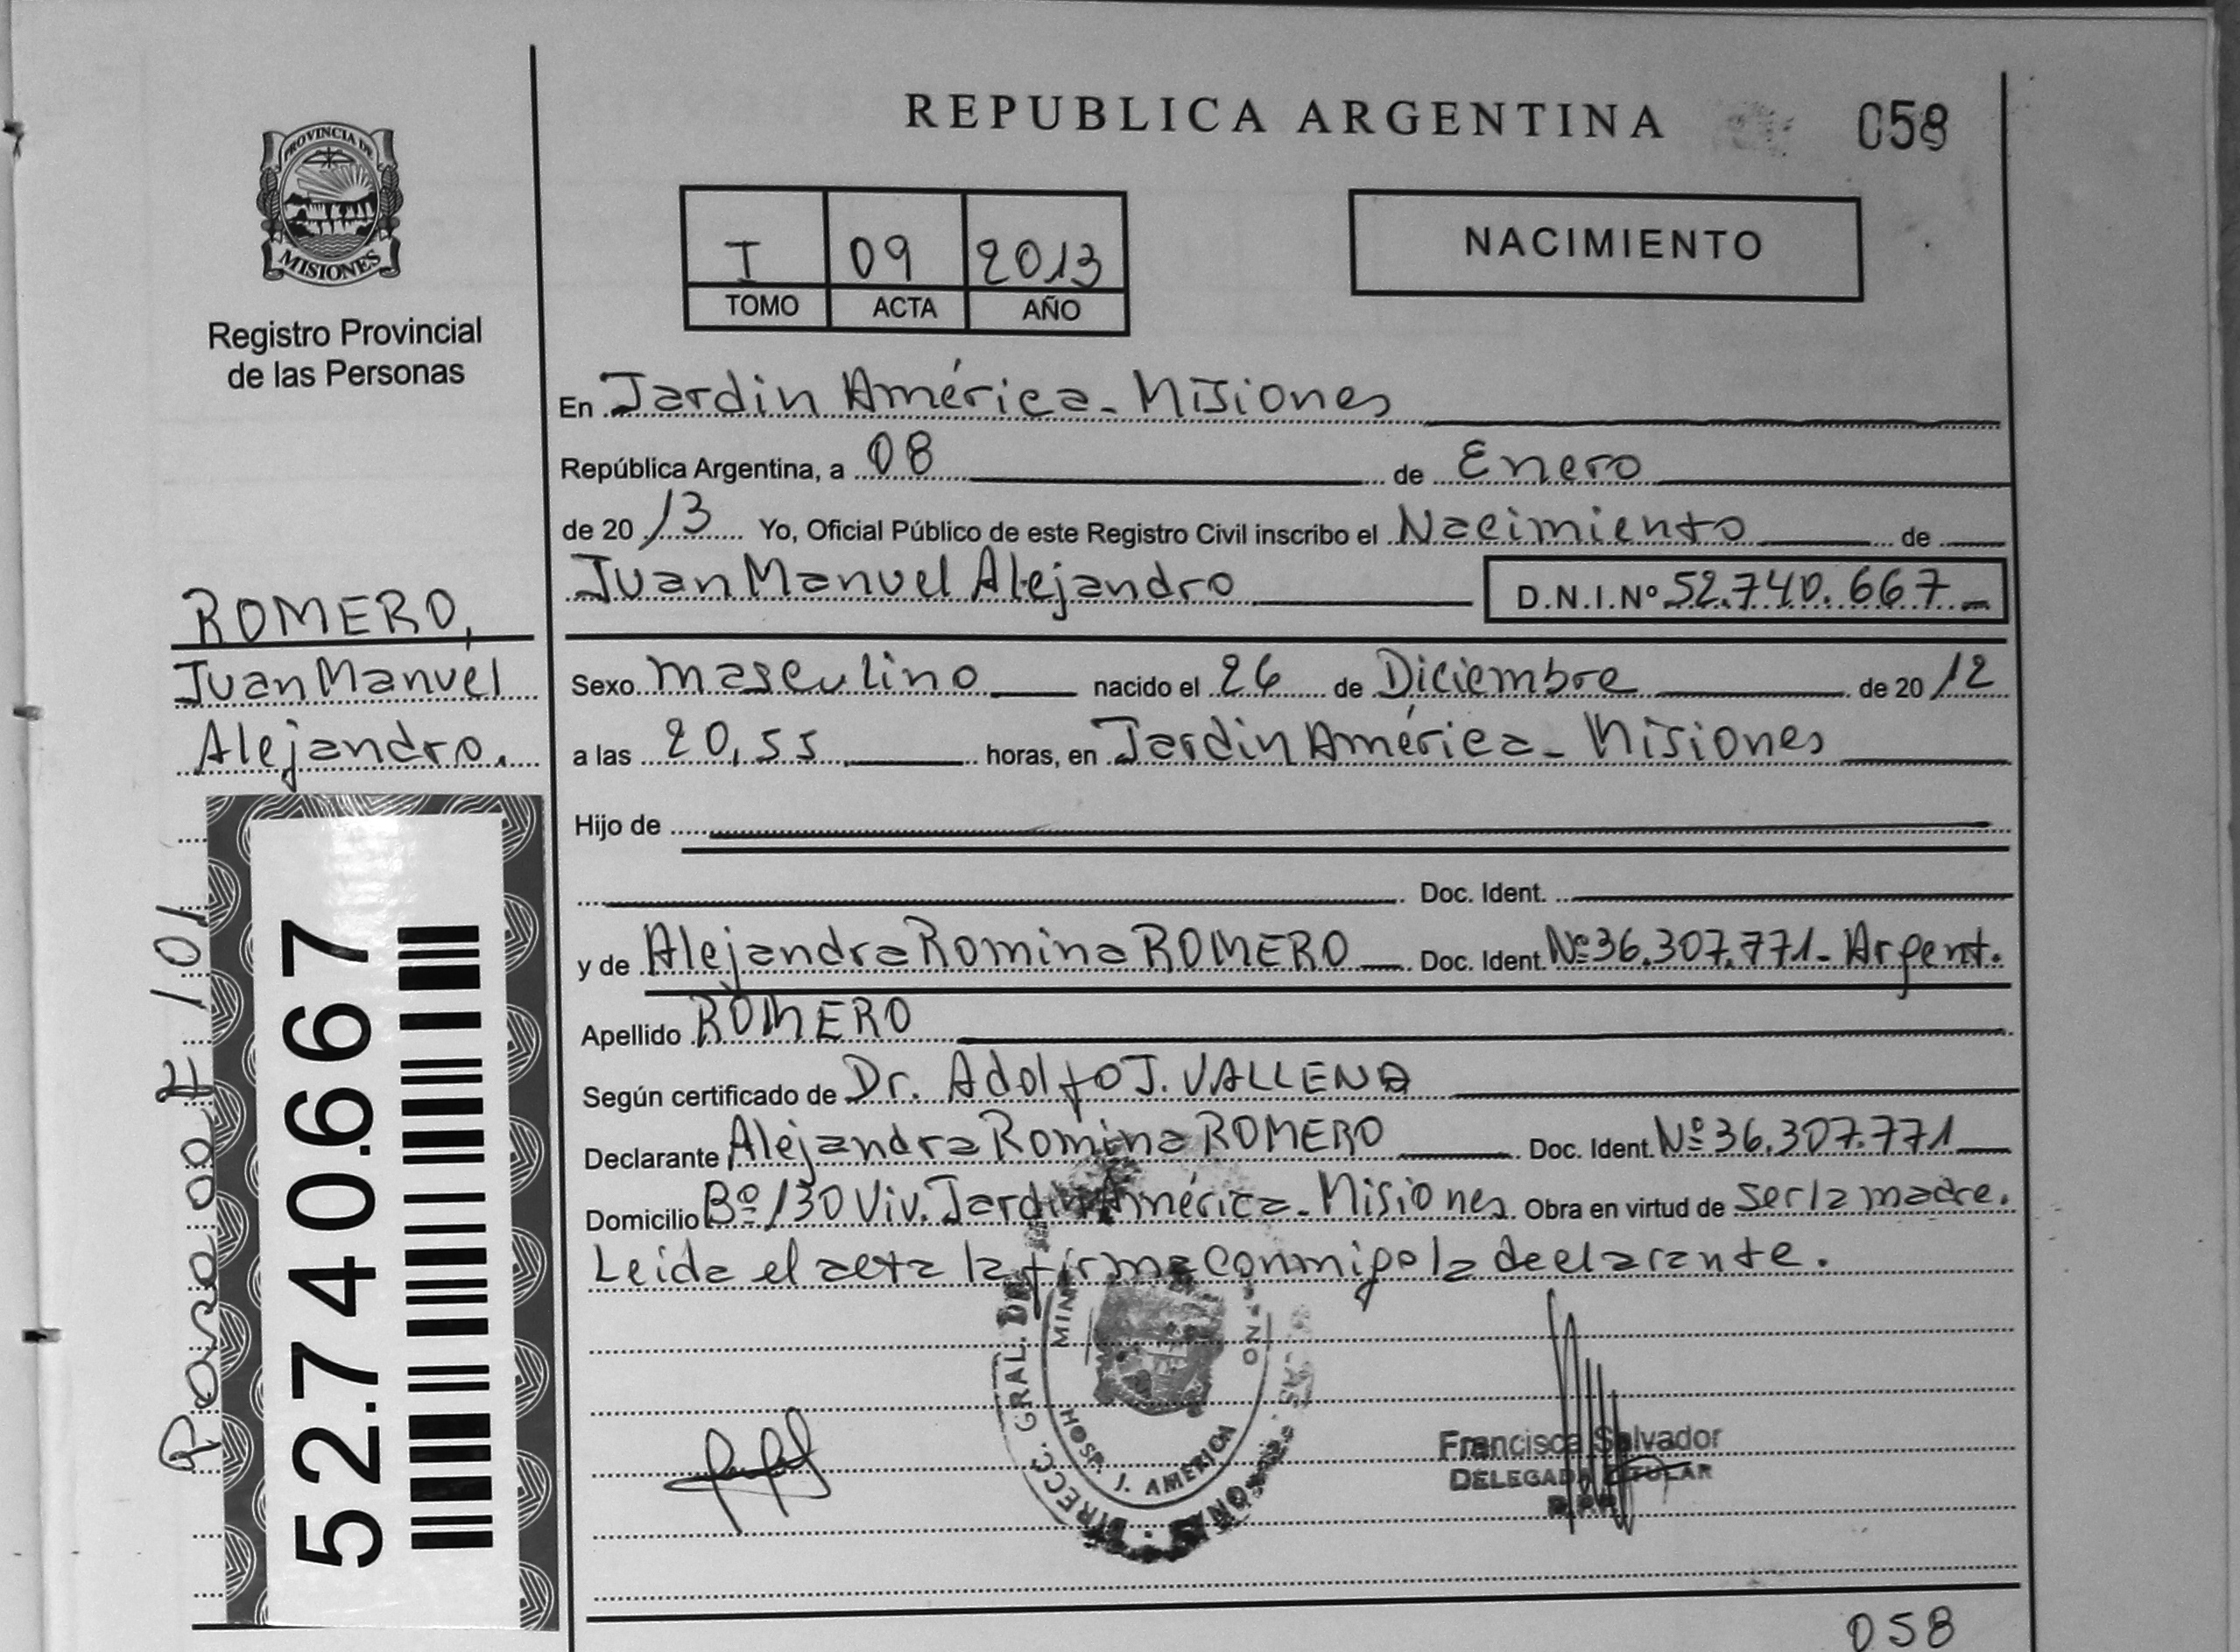 REPUBLICA ARGENTINA
058
PROVINCIA DE
MISIONES
Registro Provincial
de las Personas
I 09 2013
TOMO ACTA AÑO
NACIMIENTO
En Jardin América - Misiones
República Argentina, a 08 de Enero
de 20 13 Yo, Oficial Público de este Registro Civil inscribo el Nacimiento de
Juan Manuel Alejandro D.N.I.Nº 52.740.667
ROMERO,
Juan Manuel
Alejandro.
Sexo masculino nacido el 26 de Diciembre de 20 12
a las 20,55 horas, en Jardin América - Misiones
Hijo de
Doc. Ident.
y de Alejandra Romina ROMERO Doc. Ident. Nº 36.307.771 - Argent.
Apellido ROMERO
Según certificado de Dr. Adolfo J. VALLENA
Declarante Alejandra Romina ROMERO Doc. Ident. Nº 36.307.771
Domicilio Bº 130 Viv. Jardin América - Misiones Obra en virtud de ser la madre.
Leida el acta la firma conmigo la declarante.
52.740.667
101
DIRECC. GRAL. DE
HOSP. J. AMERICA
Francisca Salvador
DELEGADA TITULAR
058